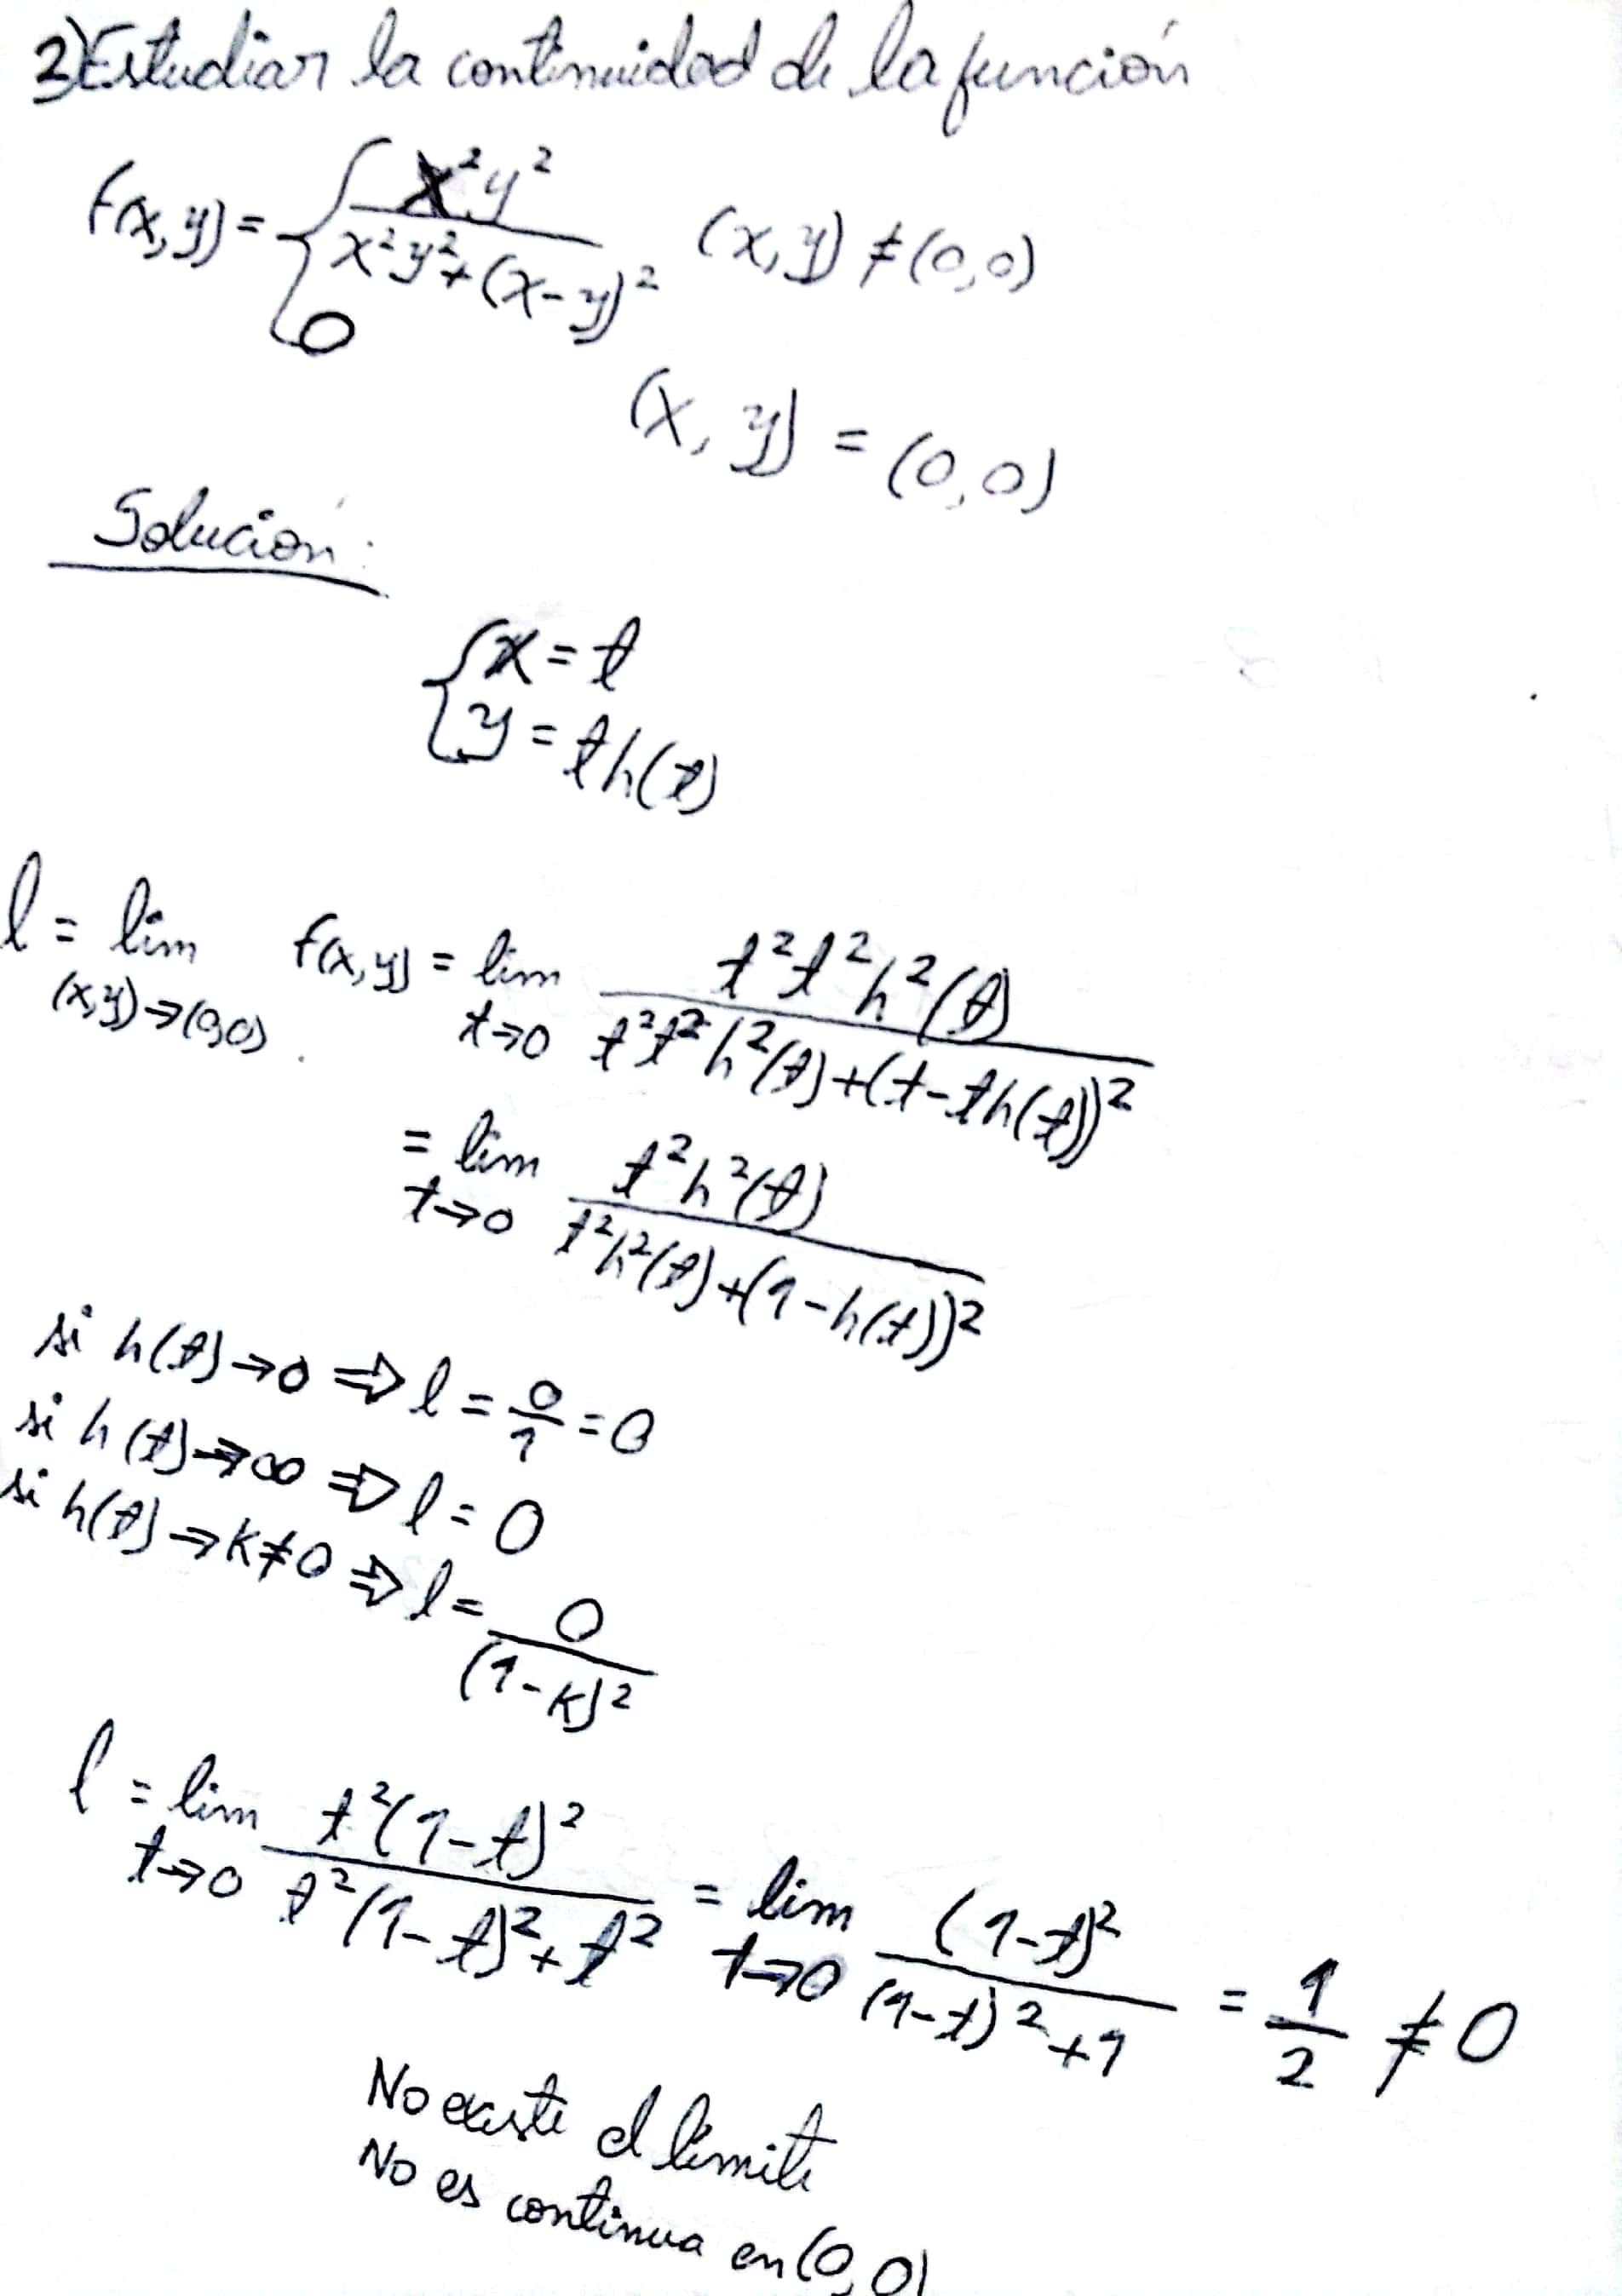 3) Estudiar la continuidad de la función
f(x,y) = { x²y² / (x²y² + (x-y)²) (x,y) ≠ (0,0)
0 (x,y) = (0,0)
Solución:
{ x = t
y = t h(t)
l = lim (x,y)→(0,0) f(x,y) = lim t→0 t²t²h²(t) / (t²t²h²(t) + (t - t h(t))²)
= lim t→0 t²h²(t) / (t²h²(t) + (1 - h(t))²)
si h(t) → 0 ⇒ l = 0/1 = 0
si h(t) → ∞ ⇒ l = 0
si h(t) → k ≠ 0 ⇒ l = 0 / (1-k)²
l = lim t→0 t²(1-t)² / (t²(1-t)² + t²) = lim t→0 (1-t)² / ((1-t)² + 1) = 1/2 ≠ 0
No existe el límite
No es continua en (0,0)